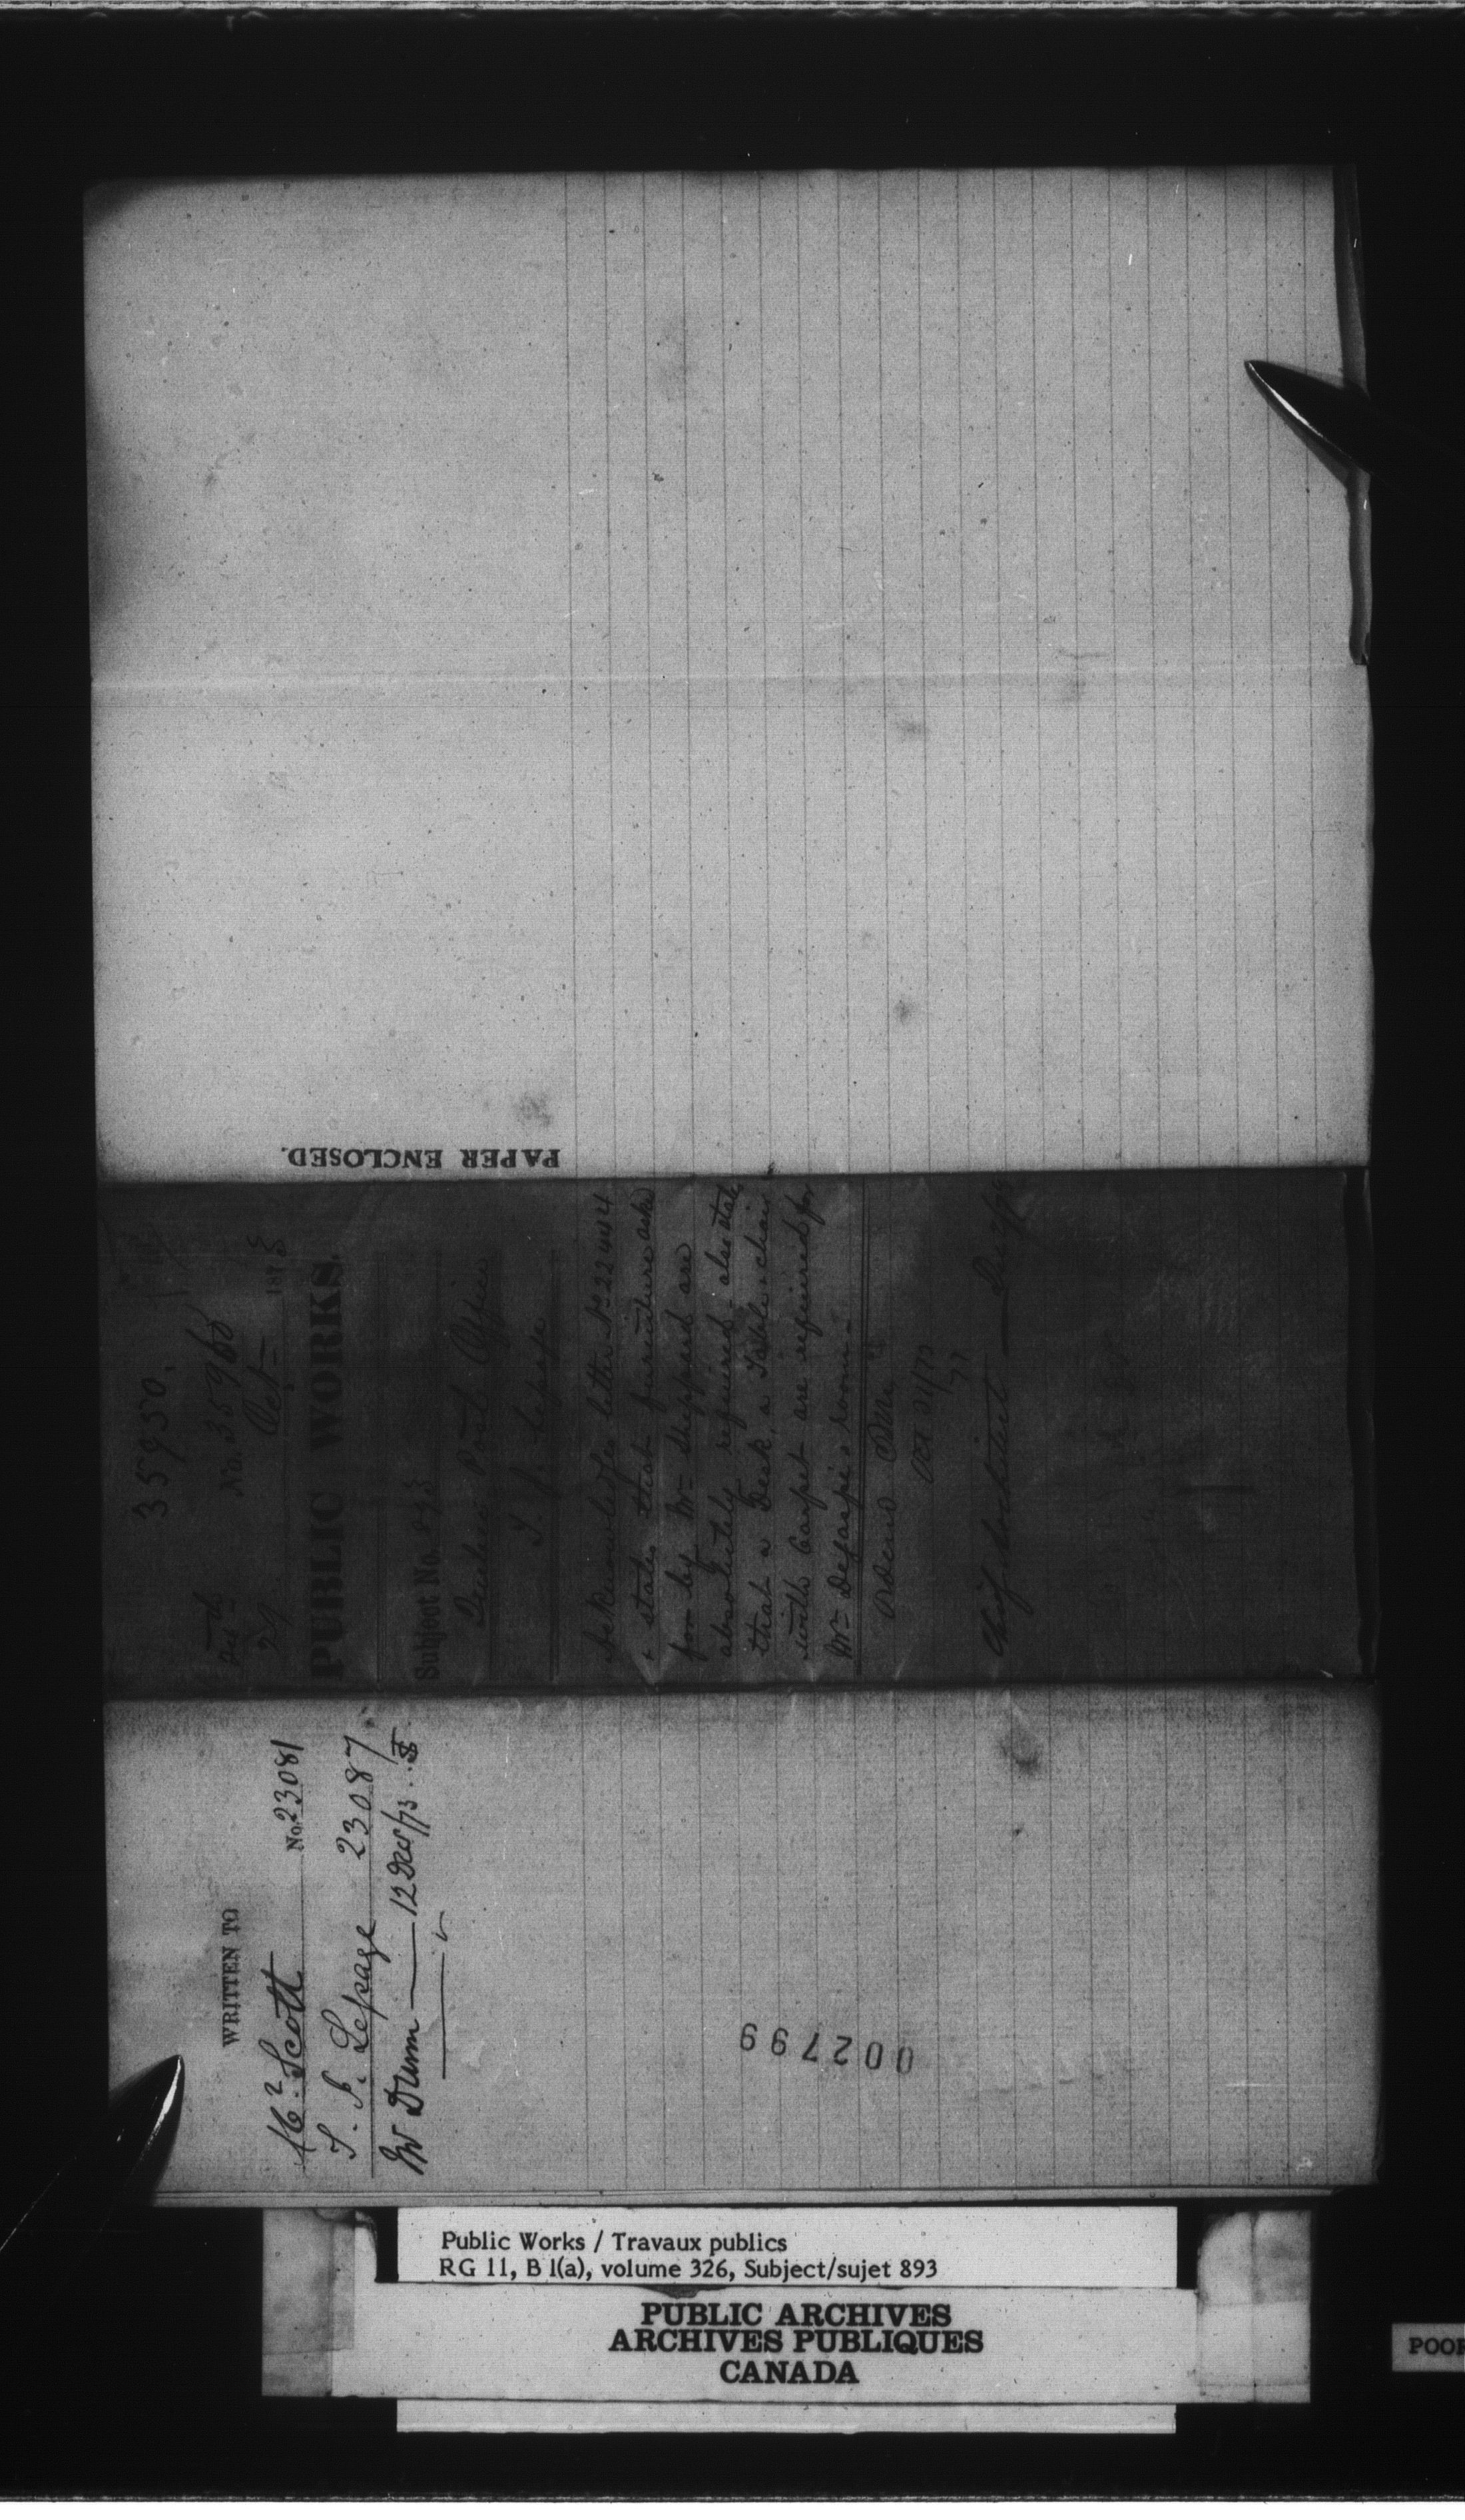 PAPER ENCLOSED.
35950.
No. 35960
29 Oct 1873
PUBLIC WORKS.
Subject No. 893
Quebec Post Office
T. S. Lepage
Acknowledges letter No. 22444
& states that furniture asked
for by Mr Sheppard are
absolutely required - also states
that a Desk, a Table & chair
with Carpet are required for
Mr 's room -
Oct 31/73
Chief Architect
WRITTEN TO
Scott No. 23081
T. S. Lepage 23087
Mr Dunn — 12 Dec/73
002799
Public Works / Travaux publics
RG 11, B 1(a), volume 326, Subject/sujet 893
PUBLIC ARCHIVES
ARCHIVES PUBLIQUES
CANADA
POOR